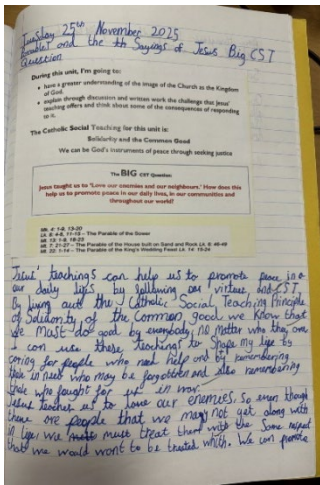 Tuesday 25th November 2025
Parables and the th Sayings of Jesus Big CST
Question
During this unit, I'm going to:
• have a greater understanding of the image of the Church as the Kingdom
of God.
• explain through discussion and written work the challenge that Jesus'
teaching offers and think about some of the consequences of responding
to it.
The Catholic Social Teaching for this unit is:
Solidarity and the Common Good
We can be God's instruments of peace through seeking justice
The BIG CST Question:
Jesus taught us to 'Love our enemies and our neighbours.' How does this
help us to promote peace in our daily lives, in our communities and
throughout our world?
Mk. 4: 1-9, 13-20
Lk. 8: 4-8, 11-15 – The Parable of the Sower
Mt. 13: 1-9, 18-23
Mt. 7: 21-27 – The Parable of the House built on Sand and Rock Lk. 6: 46-49
Mt. 22: 1-14 – The Parable of the King's Wedding Feast Lk. 14: 15-24
Jesus' teachings can help us to promote peace in a
our daily lifs by following our virtues, and CST.
By living out the Catholic Social Teaching Principle
of Solidarity of the Common good we know that
we must do good by everybody, no matter who they are.
I can use these teachings to shape my life by
caring for people who need help and by remembering
those in need who may be forgotten and also remembering
those who fought for us in war.
Jesus teaches us to love our enemies. So even though
there are people that we may not get along with
in life, we must must treat them with the same respect
that we would want to be treated with. We can promote